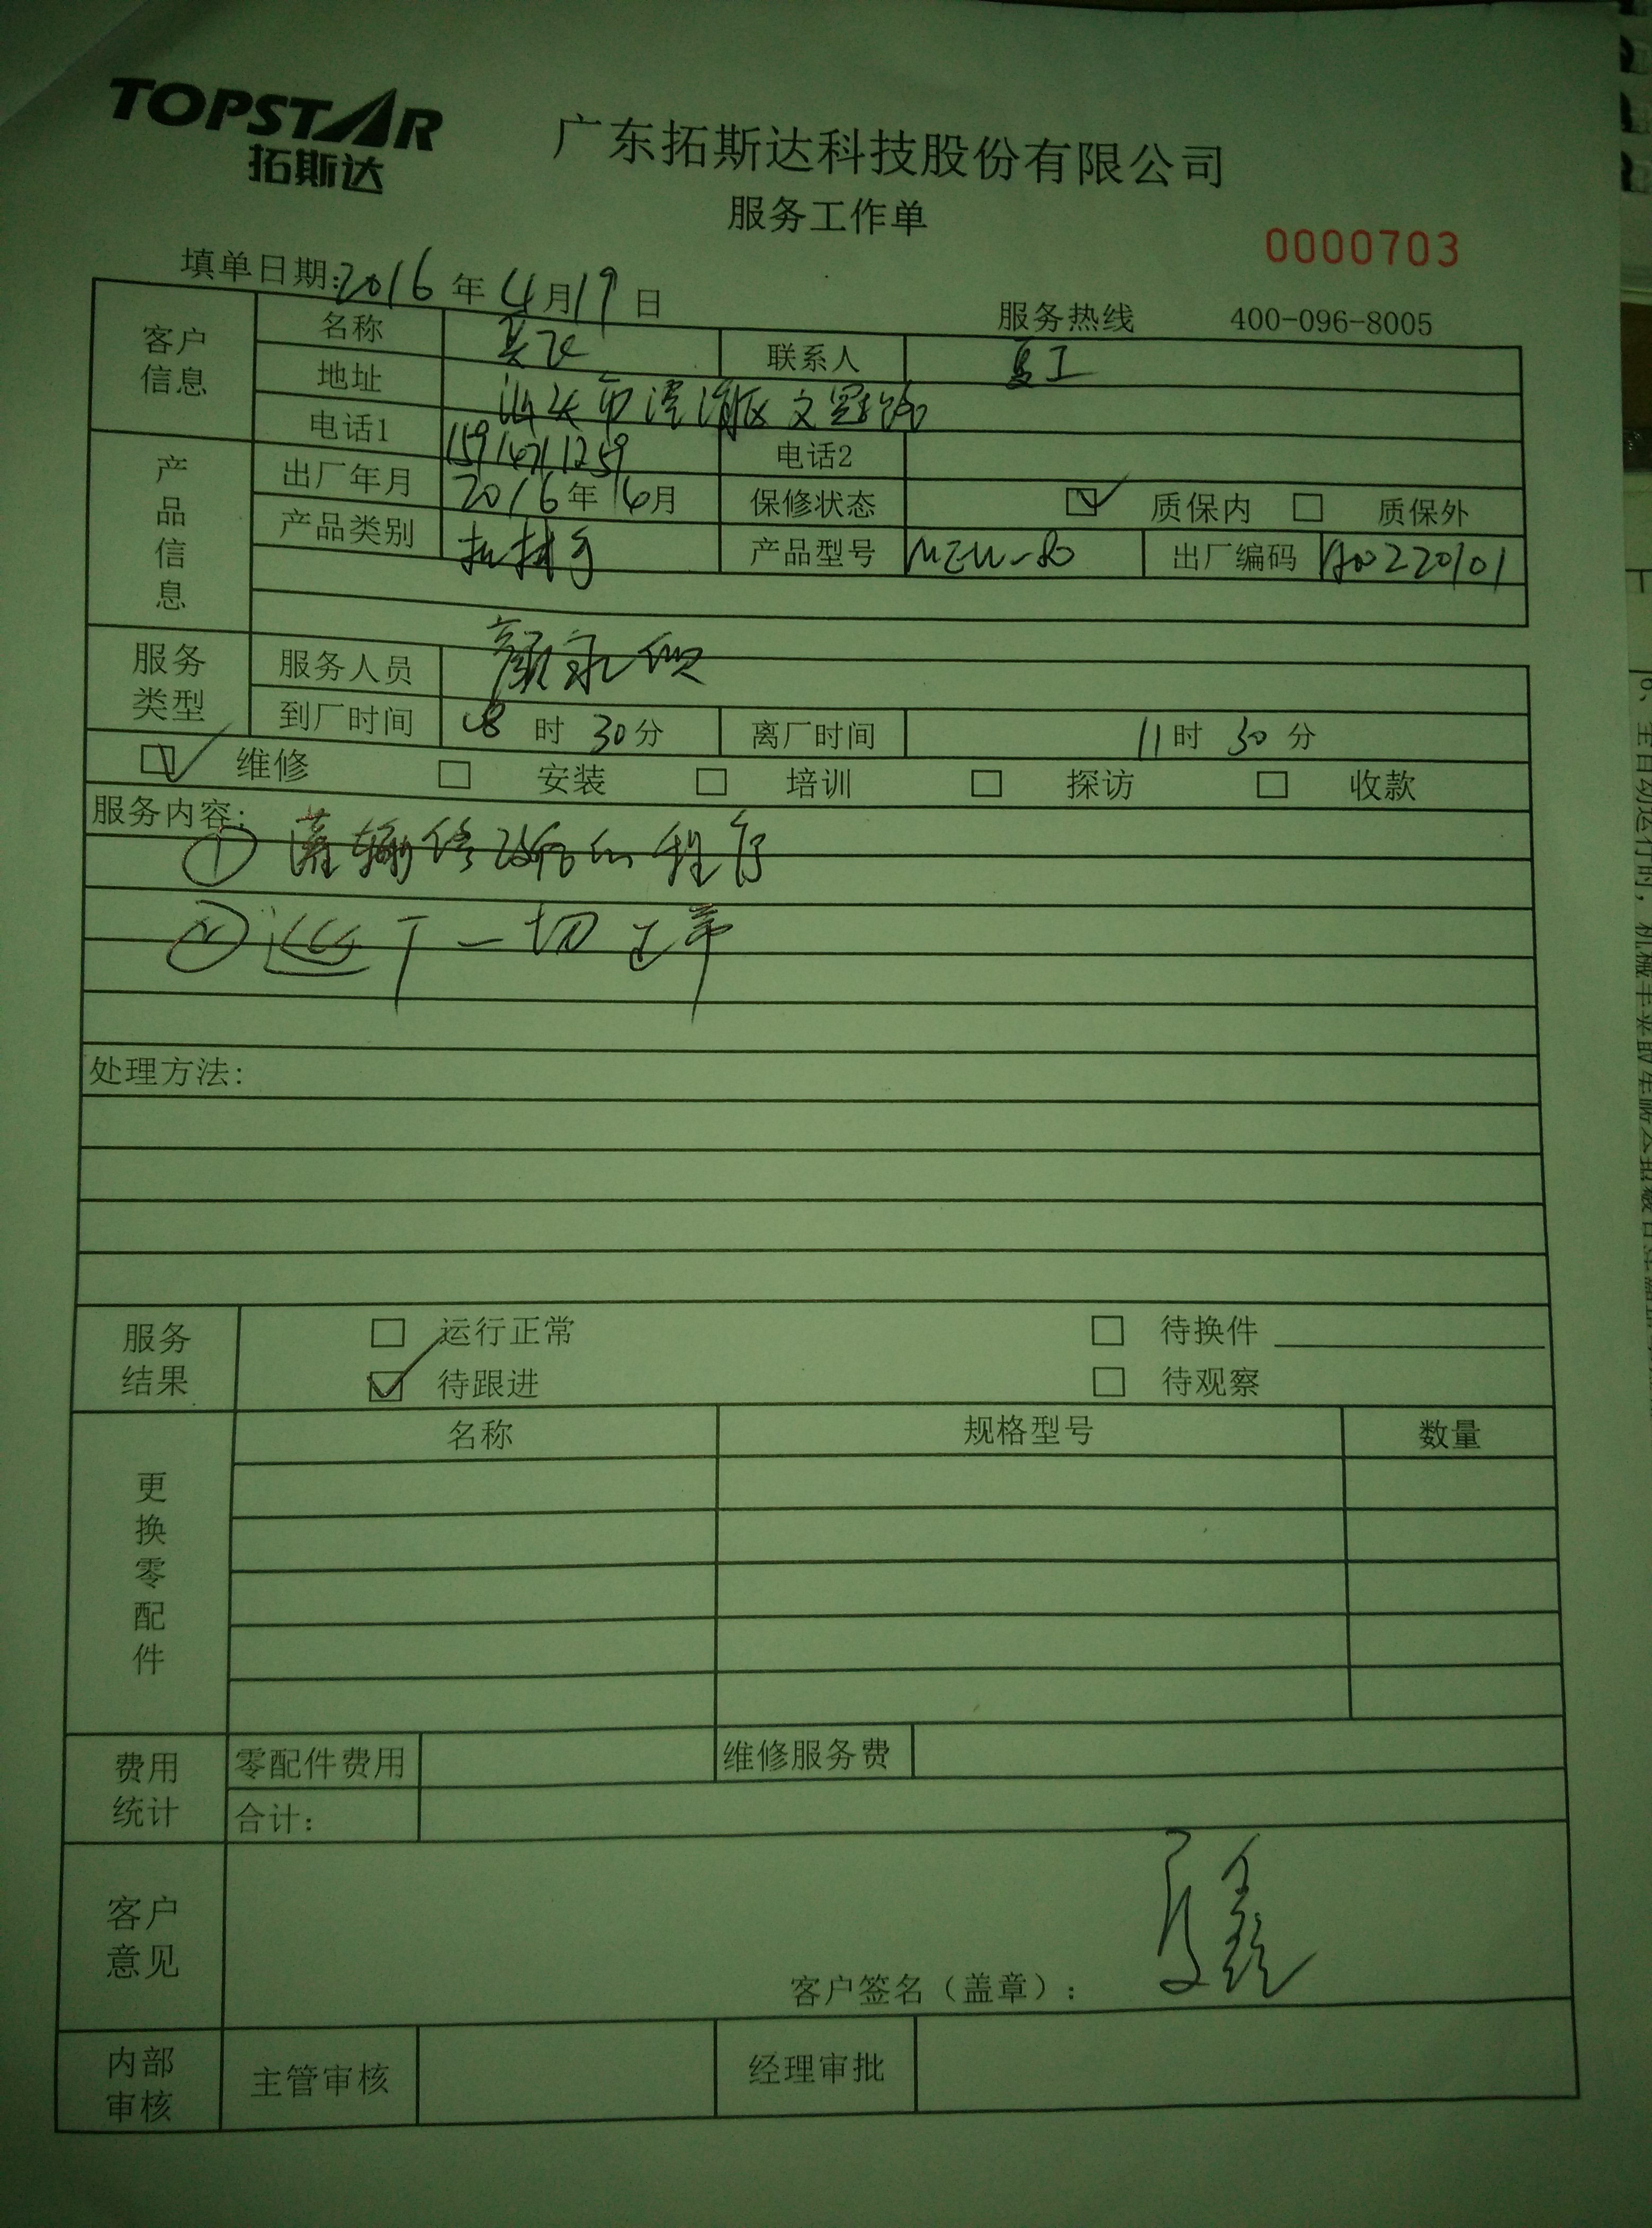 TOPSTAR
拓斯达
广东拓斯达科技股份有限公司
服务工作单
0000703
填单日期:2016年4月19日
服务热线 400-096-8005
客户信息
名称
联系人
地址 市 区文冠路
电话1 15914711259 电话2
产品信息
出厂年月 2016年 月 保修状态 质保内 质保外
产品类别 机械手 产品型号 出厂编码
服务类型
服务人员 颜
到厂时间 08时30分 离厂时间 11时30分
维修 安装 培训 探访 收款
服务内容:
① 灌输修改后的程序
② 巡厂一切正常
处理方法:
服务结果
运行正常 待换件
待跟进 待观察
更换零配件
名称 规格型号 数量
费用统计
零配件费用 维修服务费
合计:
客户意见
客户签名(盖章):
内部审核
主管审核 经理审批